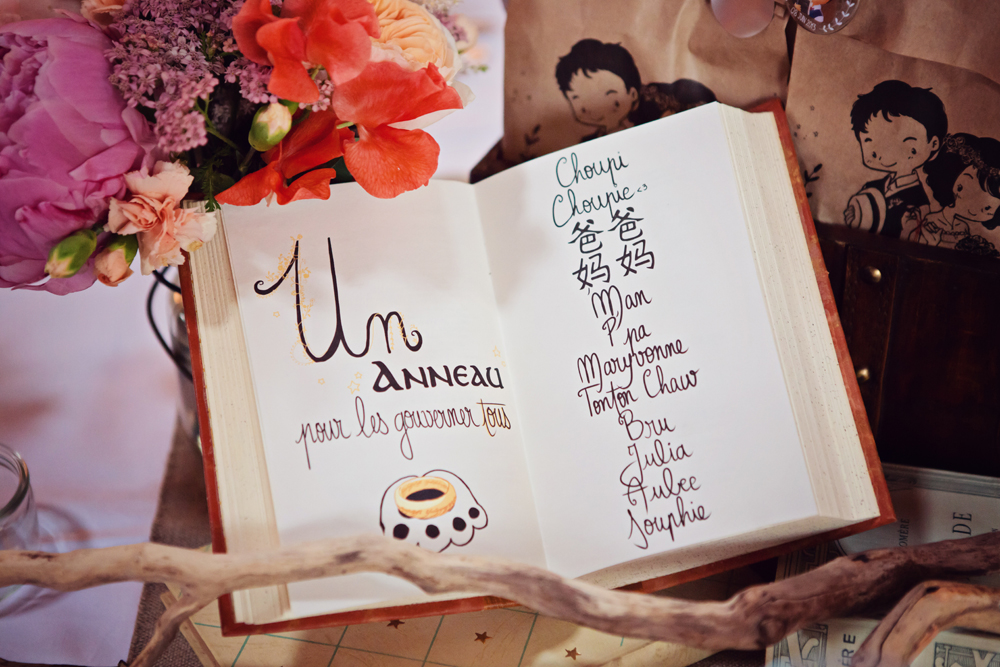 Un
ANNEAU
pour les gouverner tous
Choupi
Choupie
爸爸
妈妈
Man
P'pa
Maryvonne
Tonton Chaw
Bru
Julia
Aubée
Jouphie
DE